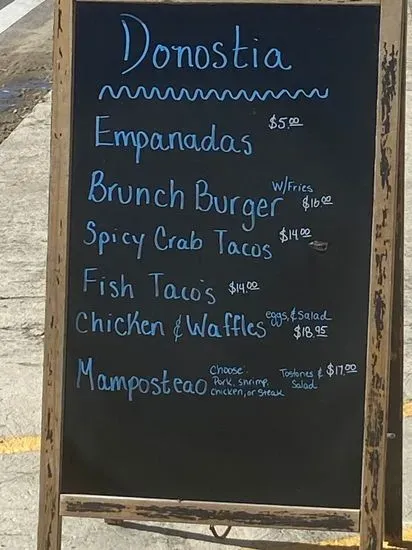 Donostia
Empanadas $5.00
Brunch Burger W/Fries $16.00
Spicy Crab Tacos $14.00
Fish Taco's $14.00
Chicken & Waffles eggs, & Salad $18.95
Mamposteao Choose: Pork, shrimp, chicken, or steak Tostones & Salad $17.00